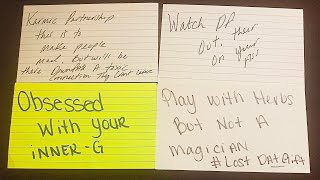 Karmic Partnership
this is to
make people
mad. But will be
there Downfall A toxic
connection They Cant Leave
Watch DP
Out, there
on your
Obsessed
With your
iNNER-G
Play with Herbs
But Not A
MAGiCiAN
# Lost DATA